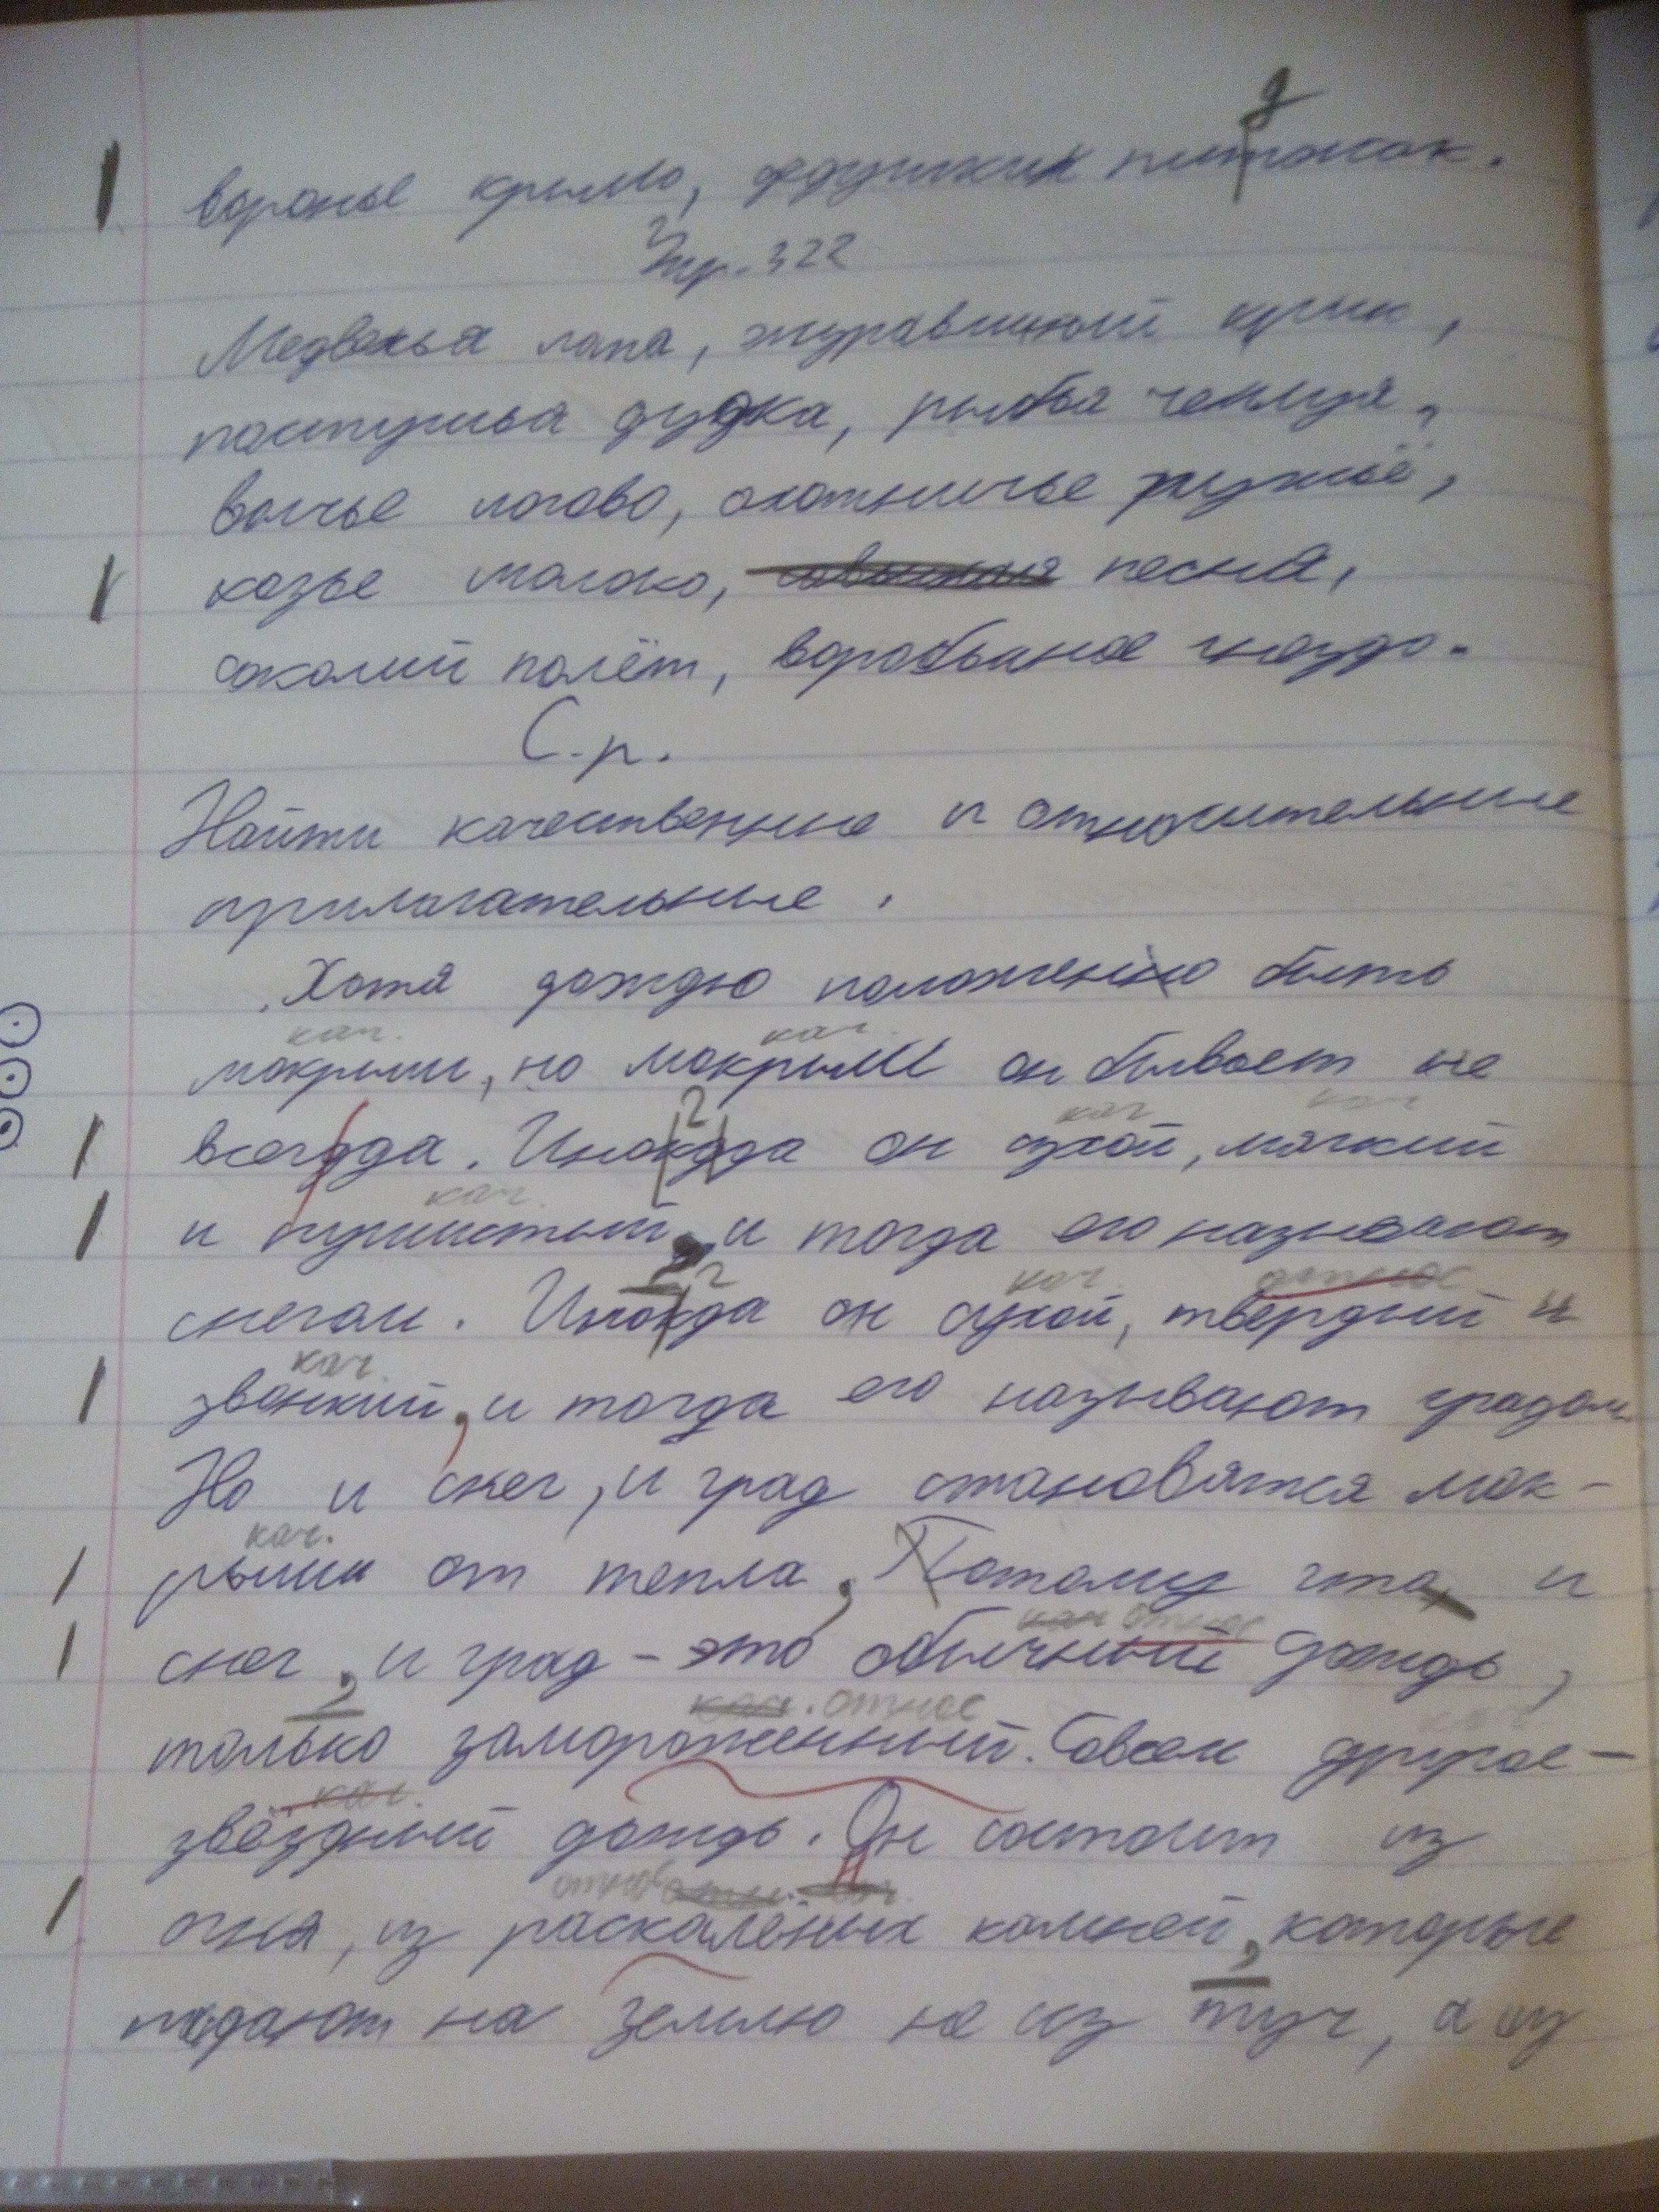 воронье крыло, дедушкин питжак.
д
Упр. 322
Медвежья лапа, журавлиный крик,
пастушья дудка, рыбья чешуя,
волчье логово, охотничье ружьё,
козье молоко, песня,
соколий полёт, воробьиное гнездо.
С.р.
Найти качественные и относительные
прилагательные.
Хотя дождю положенно быть
кач. кач.
мокрым, но мокрым он бывает не
г кач кач
всегдда. Инокдда он сухой, мягкий
кач.
и пушистый, и тогда его называют
г кач. относ
снегом. Инокда он сухой, твёрдый и
кач.
звонкий, и тогда его называют градом
Но и снег, и град становятся мок-
кач.
рыми от тепла, Потому что, и
кач относ
снег, и град - это обычный дождь,
кач. относ
только замороженный. Совсем другое -
кач.
звёздный дождь. Он состоит из
относ н
огня, из раскалёных камней, которые
падают на землю не из туч, а из